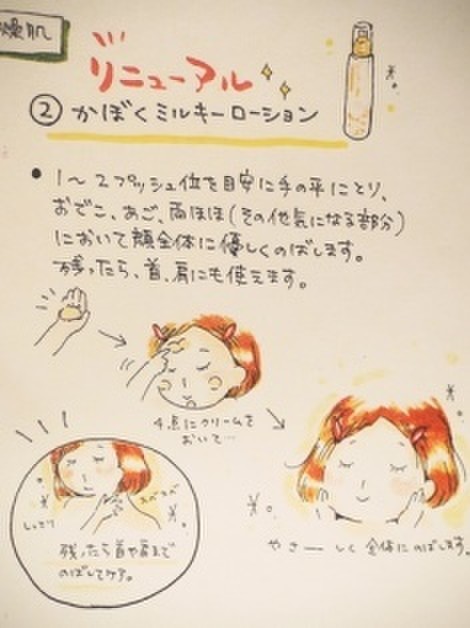 燥肌
リニューアル
② かぼくミルキーローション
● 1〜2プッシュ位を目安に手の平にとり、
おでこ、あご、両ほほ(その他気になる部分)
において顔全体に優しくのばします。
残ったら、首、肩にも使えます。
4点にクリームを
おいて…
スベスベ
しっとり
やさーしく全体にのばします。
残ったら首や肩まで
のばしてケア。